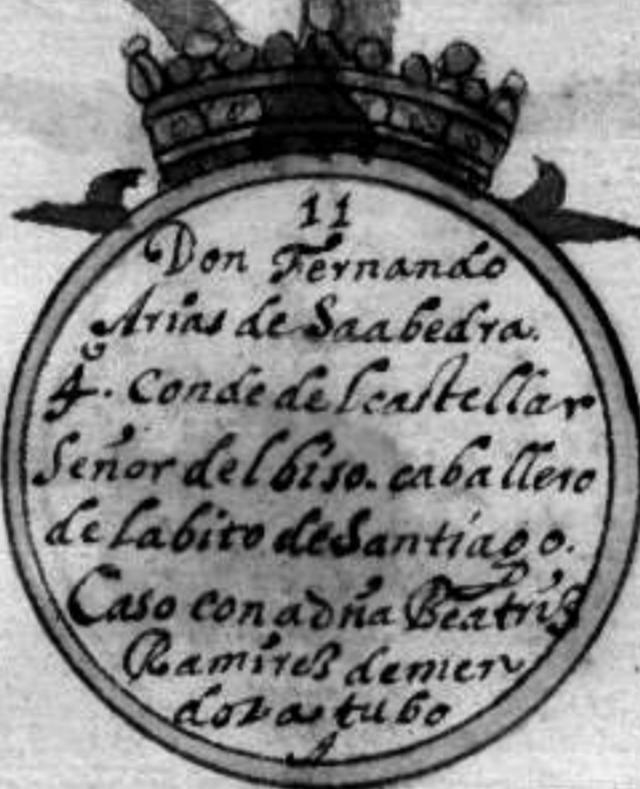 11
Don Fernando
Arias de Saabedra.
4º. Conde del castellar
Señor del biso. caballero
de labito de Santiago.
Caso con a dña Beatriz
Ramirez de men
doza tubo
A